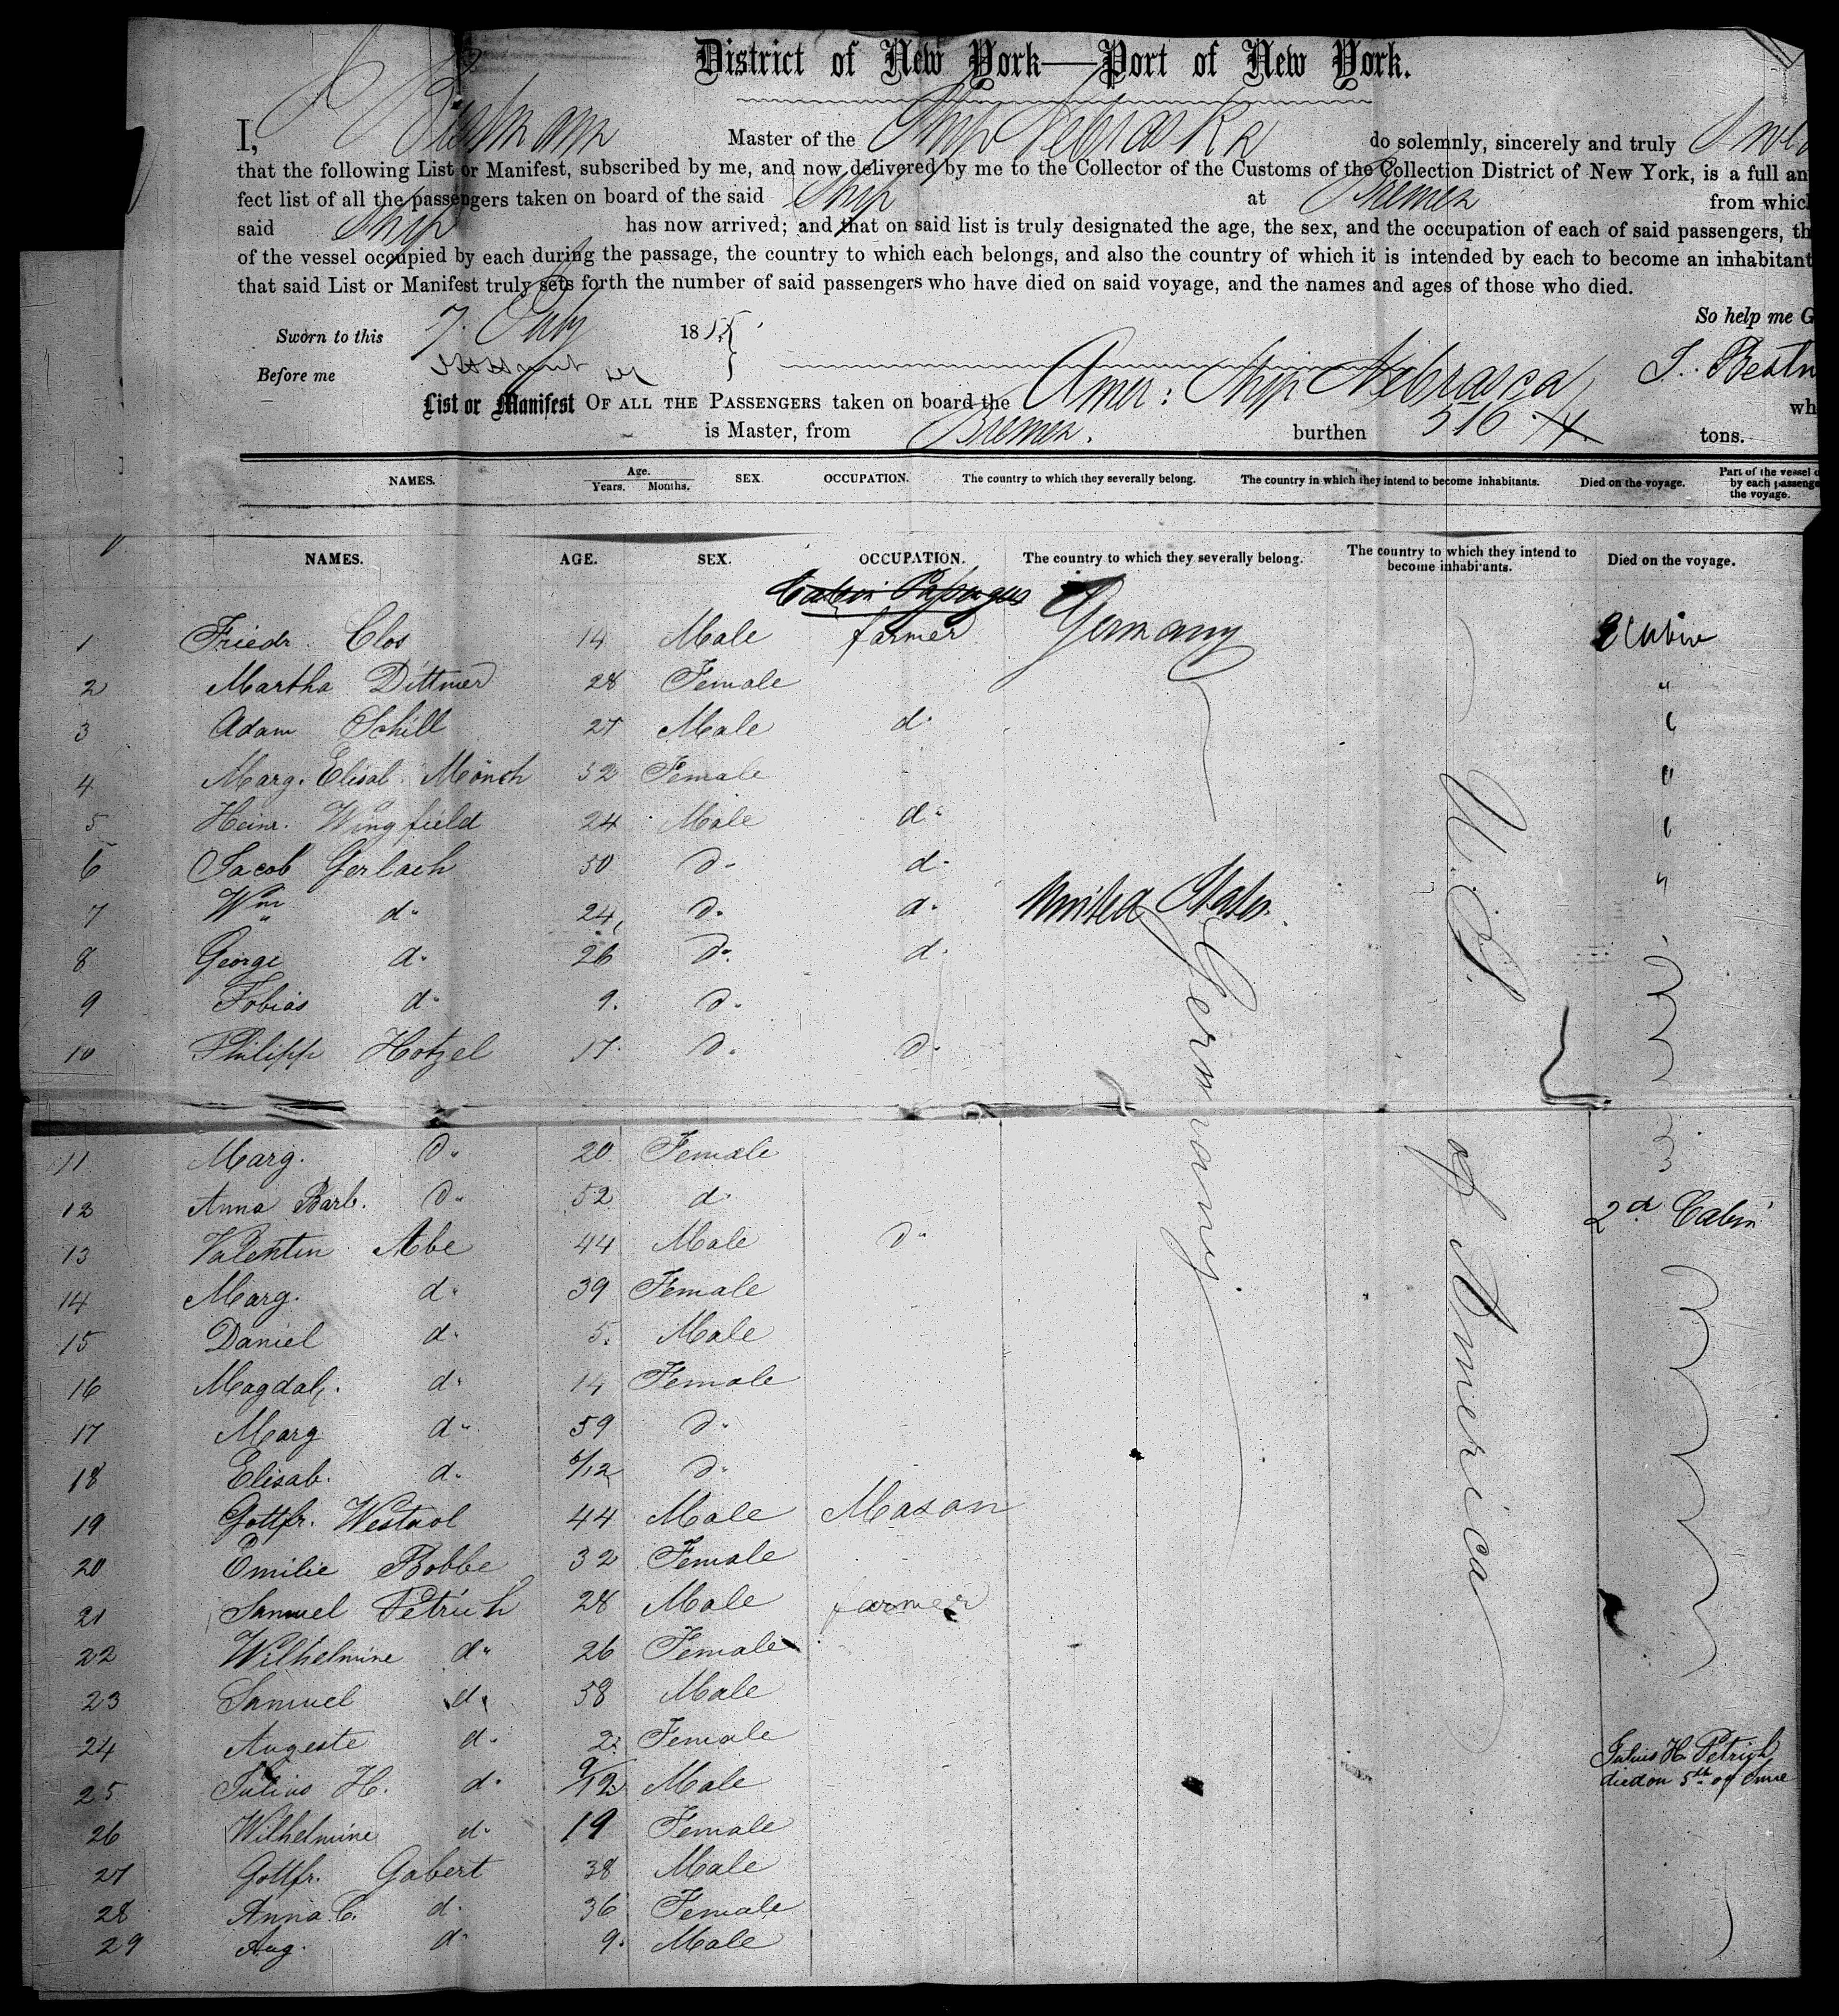 District of New York—Port of New York.
I, Master of the Ship Nebraska do solemnly, sincerely and truly
that the following List or Manifest, subscribed by me, and now delivered by me to the Collector of the Customs of the Collection District of New York, is a full an
fect list of all the passengers taken on board of the said Ship at Bremen from which
said Ship has now arrived; and that on said list is truly designated the age, the sex, and the occupation of each of said passengers, th
of the vessel occupied by each during the passage, the country to which each belongs, and also the country of which it is intended by each to become an inhabitant
that said List or Manifest truly sets forth the number of said passengers who have died on said voyage, and the names and ages of those who died.
So help me G
Sworn to this 7. July 1855
Before me
List or Manifest OF ALL THE PASSENGERS taken on board the Amer: Ship Nebrasca wh
is Master, from Bremen. burthen 516 tons.
NAMES. Age. Years. Months. SEX. OCCUPATION. The country to which they severally belong. The country in which they intend to become inhabitants. Died on the voyage. Part of the vessel o
by each passenge
the voyage.
NAMES. AGE. SEX. OCCUPATION. The country to which they severally belong. The country to which they intend to become inhabitants. Died on the voyage.
Cabin Passengers
1 Friedr. Clos 14 Male farmer Germany 2 Cabin
2 Martha Dittmer 28 Female "
3 Adam Schill 27 Male do
4 Marg. Elisab. Mönch 32 Female "
5 Heinr. Wingfield 24 Male do
6 Jacob Gerlach 50 do do
7 Wm do 24 do do United States
8 George do 26 do do Germany
9 Tobias do 9. do
10 Philipp Hotzel 17 do do
U. S. of America
11 Marg. do 20 Female
12 Anna Barb. do 52 do 2d Cabin
13 Valentin Abe 44 Male do
14 Marg. do 39 Female
15 Daniel do 5. Male
16 Magdal. do 14 Female
17 Marg do 59 do
18 Elisab. do 6/12 do
19 Gottfr. Westnol 44 Male Mason
20 Emilie Bobbe 32 Female
21 Samuel Petrich 28 Male farmer
22 Wilhelmine do 26 Female
23 Samuel do 58 Male
24 Augeste do 2. Female
25 Julius H. do 9/12 Male Julius H. Petrich
died on 5th of June
26 Wilhelmine do 19 Female
27 Gottfr. Gabert 38 Male
28 Anna C. do 36 Female
29 Aug. do 9. Male